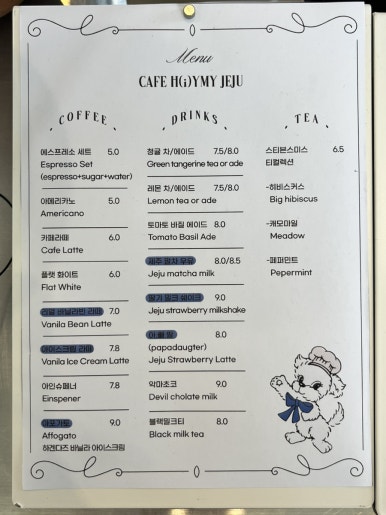 Menu
CAFE H(i)YMY JEJU
COFFEE
에스프레소 세트 5.0
Espresso Set
(espresso+sugar+water)
아메리카노 5.0
Americano
카페라떼 6.0
Cafe Latte
플랫 화이트 6.0
Flat White
리얼 바닐라빈 라떼 7.0
Vanila Bean Latte
아이스크림 라떼 7.8
Vanila Ice Cream Latte
아인슈페너 7.8
Einspener
아포가토 9.0
Affogato
하겐다즈 바닐라 아이스크림
DRINKS
청귤 차/에이드 7.5/8.0
Green tangerine tea or ade
레몬 차/에이드 7.5/8.0
Lemon tea or ade
토마토 바질 에이드 8.0
Tomato Basil Ade
제주 말차 우유 8.0/8.5
Jeju matcha milk
딸기 밀크 쉐이크 9.0
Jeju strawberry milkshake
8.0
(papadaugter)
Jeju Strawberry Latte
악마초코 9.0
Devil cholate milk
블랙밀크티 8.0
Black milk tea
TEA
스티븐스미스 6.5
티컬렉션
-히비스커스
Big hibiscus
-캐모마일
Meadow
-페퍼민트
Pepermint